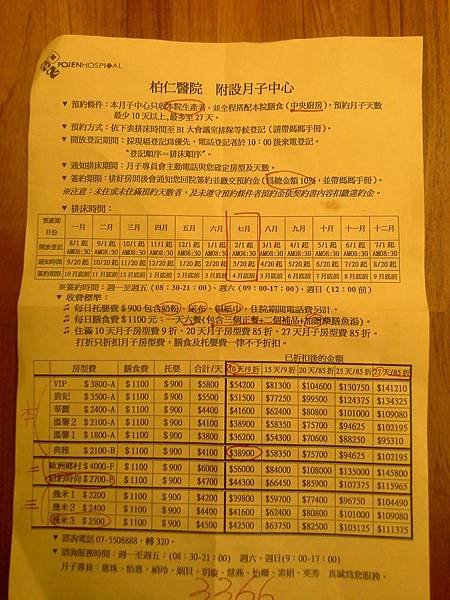 POJENHOSPITAL
柏仁醫院 附設月子中心
▼ 預約條件：本月子中心只收本院生產者，並全程搭配本院膳食(中央廚房)，預約月子天數
最少 10 天以上，最多至 27 天。
▼ 預約方式：依下表排床時間至 B1 大會議室排隊等候登記(請帶媽媽手冊)。
▼ 開放登記期間：採現場登記為優先，電話登記者於 10：00 後來電登記。
"登記順序＝排床順序"。
▼ 通知排床期間：月子專員會主動電話與您確定房型及天數。
▼ 簽約期限：排好房間後會通知您回院簽約並繳交預約金(為總金額 10%，並帶媽媽手冊)。
※注意：未住或未住滿預約天數者，及未遵守預約條件者預約金依契約書內容扣繳違約金。
▼ 排床時間：
預產期月份 一月 二月 三月 四月 五月 六月 七月 八月 九月 十月 十一月 十二月
開放登記 8/1 起 AM08:30 9/1 起 AM08:30 10/1 起 AM08:30 11/1 起 AM08:30 12/1 起 AM08:30 1/2 起 AM08:30 2/1 起 AM08:30 3/1 起 AM08:30 4/1 起 AM08:30 5/1 起 AM08:30 6/1 起 AM08:30 7/1 起 AM08:30
通知時間 9/20 起 10/20 起 11/20 起 12/20 起 1/20 起 2/20 起 3/20 起 4/20 起 5/20 起 6/20 起 7/20 起 8/20 起
簽約期限 10 月底前 11 月底前 12 月底前 1 月底前 2 月底前 3 月底前 4 月底前 5 月底前 6 月底前 7 月底前 8 月底前 9 月底前
※簽約時間：週一至週五(08：30-21：00)、週六(09：00-17：00)、週日(12：00 前)
▼ 收費標準：
♫ 每日托嬰費＄900 包含奶粉、尿布、濕紙巾，住院期間電話費另計。
♫ 每日膳食費＄1100 元：一天六餐(包含三個正餐+二個補品+加贈鱸魚湯)。
♫ 住滿 10 天月子房型費 9 折、20 天月子房型費 85 折、27 天月子房型費 85 折。
打折只折扣月子房型費、膳食費托嬰費一律不予折扣
已折扣後的金額
房型費 膳食費 托嬰 合計/天 10 天/9 折 15 天/9 折 20 天/85 折 25 天/85 折 27 天/85 折
VIP ＄3800-A ＄1100 ＄900 ＄5800 ＄54200 ＄81300 ＄104600 ＄130750 ＄141210
貴妃 ＄3500-A ＄1100 ＄900 ＄5500 ＄51500 ＄77250 ＄99500 ＄124375 ＄134325
華麗 ＄2400-A ＄1100 ＄900 ＄4400 ＄41600 ＄62400 ＄80800 ＄101000 ＄109080
溫馨 2 ＄2100-A ＄1100 ＄900 ＄4100 ＄38900 ＄58350 ＄75700 ＄94625 ＄102195
溫馨 1 ＄1800-A ＄1100 ＄900 ＄3800 ＄36200 ＄54300 ＄70600 ＄88250 ＄95310
典雅 ＄2100-B ＄1100 ＄900 ＄4100 ＄38900 ＄58350 ＄75700 ＄94625 ＄102195
歐洲鄉村 ＄4000-F ＄1100 ＄900 ＄6000 ＄56000 ＄84000 ＄108000 ＄135000 ＄145800
紐約時尚 ＄2700-F ＄1100 ＄900 ＄4700 ＄44300 ＄66450 ＄85900 ＄107375 ＄115965
幾米 1 ＄2200 ＄1100 ＄900 ＄4200 ＄39800 ＄59700 ＄77400 ＄96750 ＄104490
幾米 2 ＄2400 ＄1100 ＄900 ＄4400 ＄41600 ＄62400 ＄80800 ＄101000 ＄109080
幾米 3 ＄2500 ＄1100 ＄900 ＄4500 ＄42500 ＄63750 ＄82500 ＄103125 ＄111375
▼ 諮詢電話 07-5508888，轉 320。
▼ 諮詢服務時間：週一至週五：(08：30-21：00) 週六、週日(9：00-17：00)
月子專員：惠珠、怡惠、 真誠為您服務。
3366